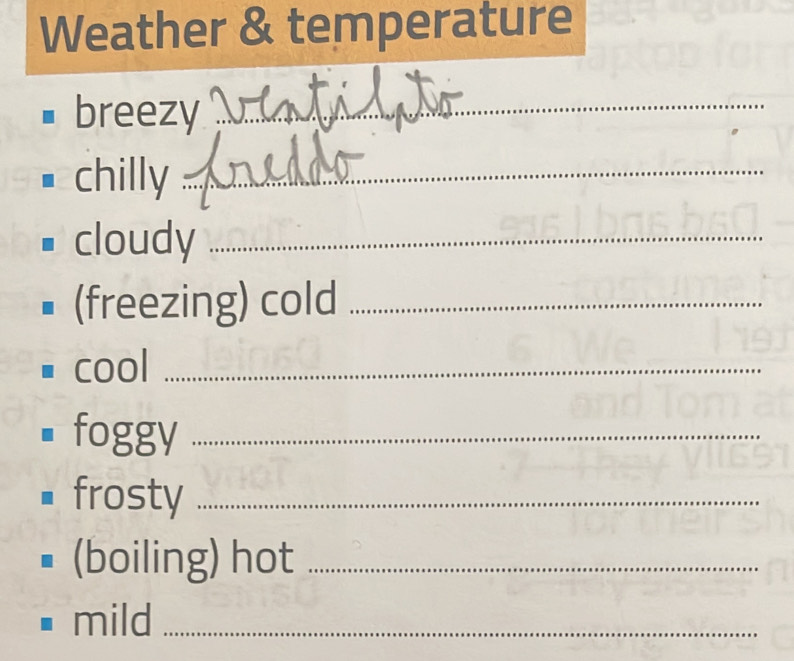 Weather & temperature
▪ breezy ventilato
▪ chilly freddo
▪ cloudy
▪ (freezing) cold
▪ cool
▪ foggy
▪ frosty
▪ (boiling) hot
▪ mild